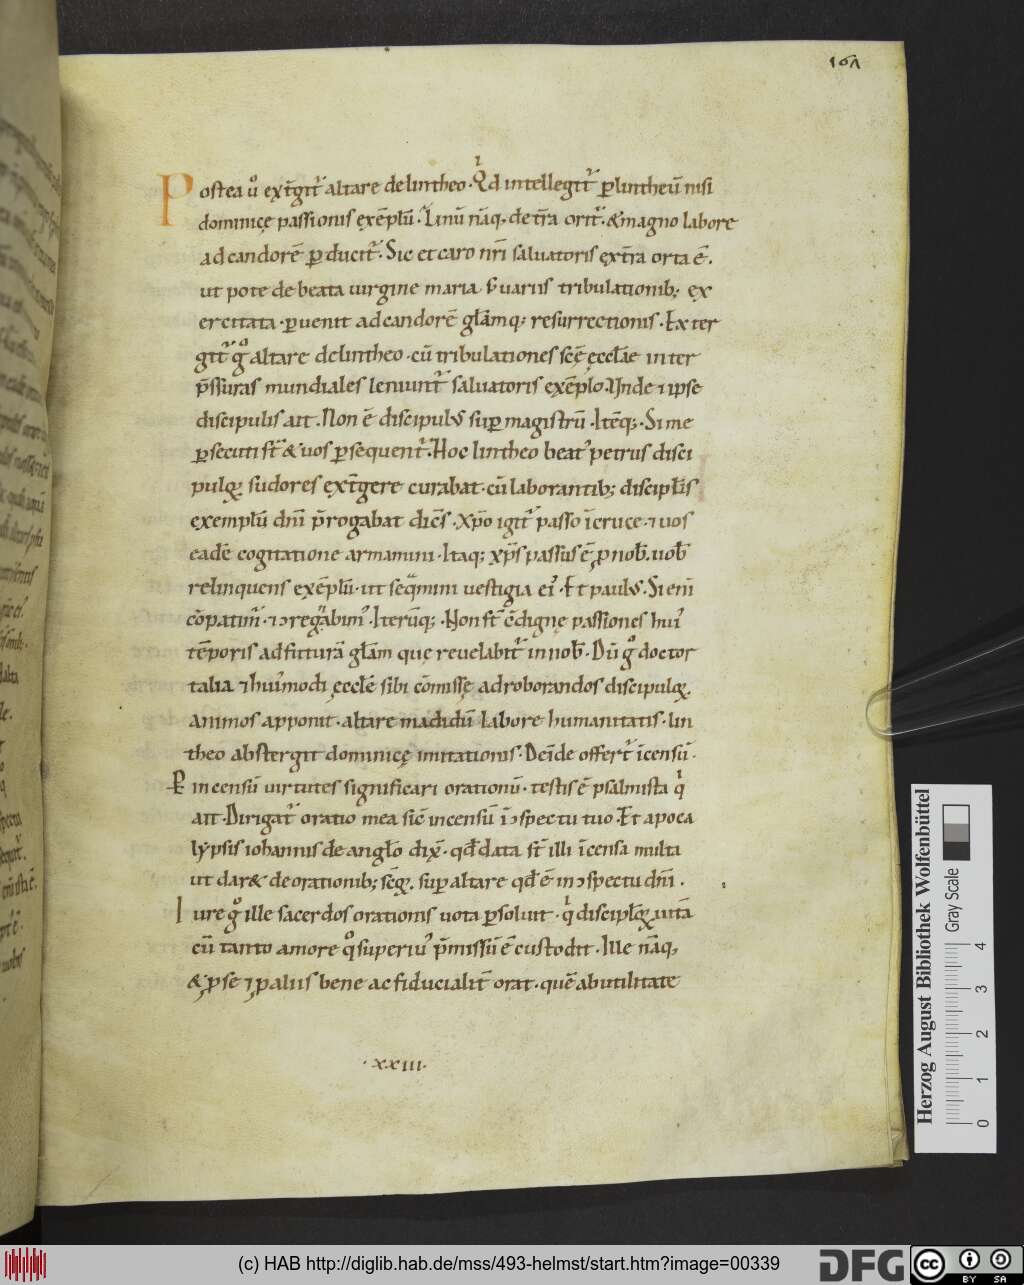 167
Postea u͛o ext͛git͛ altare de lintheo. Qͥd intellegit͛ ꝑ lintheū nisi
dominicę passionis exēplū. Linū nāq. de t͛ra orit͛. & magno labore
ad candorē ꝑducit͛. Sic et caro nr̄i saluatoris ex t͛ra orta ē.
ut pote de beata uirgine maria s; uariis tribulationib; ex
ercitata. ꝑuenit ad candorē gl̄amq; resurrectionis. Exter
git͛ gͦ altare de lintheo. cū tribulationes scę̄ ęccl̄ae inter
p̄ssuras mundiales leniunt͛ saluatoris exēplo. Unde ⁊ ipse
discipulis ait. Non ē discipulꝰ suꝑ magistrū. Itēq;. Si me
ꝑsecuti st̄ & uos ꝑsequent͛. Hoc lintheo beatꝰ petrus disci
pulоꝝ sudores ext͛gere curabat. cū laborantib; discipl̄is
exemplū dn̄i p̄rogabat dicēs. Xp̄o igit͛ passo īcruce. ⁊ uos
eadē cogitatione armamini. Itaq; xp̄s passus ē ꝓ nob̄. uob̄
relinquens exēplū. ut seq̄mini uestigia eiꝰ. Et paulꝰ. Si eni̅
cōpatim͛. ⁊ ↄregnabimꝰ. Iterūq;. Non st̄ ꝯdignę passiones huiꝰ
tēporis ad futurā gl̄am que reuelabit͛ in nob̄. Dū gͦ doctor
talia ⁊ huiꝰmodi ęccl̄ę sibi cōmissę ad roborandos discipuloꝝ
animos apponit. altare madidū labore humanitatis. lin
theo abstergit dominicę imitationis. Deīde offert͛ īcensū.
Ꝑ incensū uirtutes significari orationū. testis ē psalmista qͥ
ait. Dirigat͛ oratio mea sic̄ incensū ī ↄspectu tuo. Et apoca
lypsis iohannis de angl̄o dix̄. qd̄ data st̄ illi īcensa multa
ut dar& de orationib; scōꝝ. suꝑ altare qd̄ ē in ↄspectu dn̄i.
Iure gͦ ille sacerdos orationis uota ꝑsoluit. qͥ discipl̄oꝝ uitā
cū tanto amore qͦ superiꝰ p̄missū ē custodit. Ille nāq,
& ꝓ se ⁊ ꝓ aliis bene ac fiducialit͛ orat. quē ab utilitate
.xxiii.
Herzog August Bibliothek Wolfenbüttel
Gray Scale
0 1 2 3 4
(c) HAB http://diglib.hab.de/mss/493-helmst/start.htm?image=00339
DFG
cc BY SA